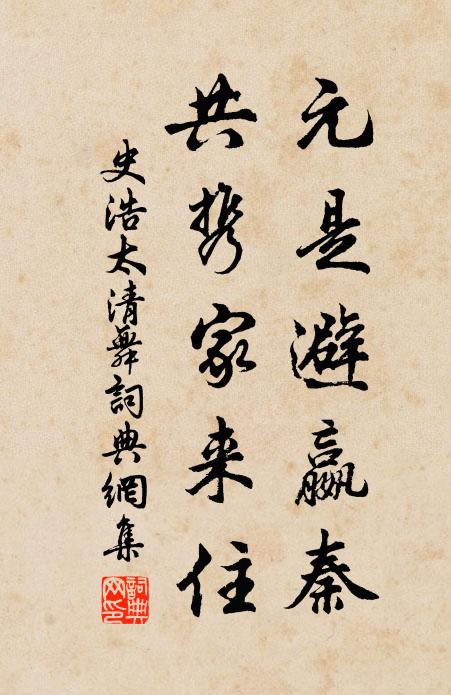 元是避嬴秦
共携家来住
史浩太清舞詞典網集
詞典网印